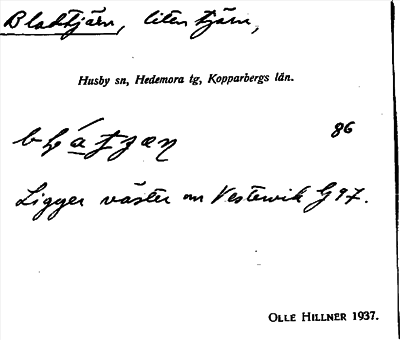 Bladtjärn, liten tjärn,
Husby sn, Hedemora tg, Kopparbergs län.
86
Ligger väster om Vestervik G 97.
OLLE HILLNER 1937.